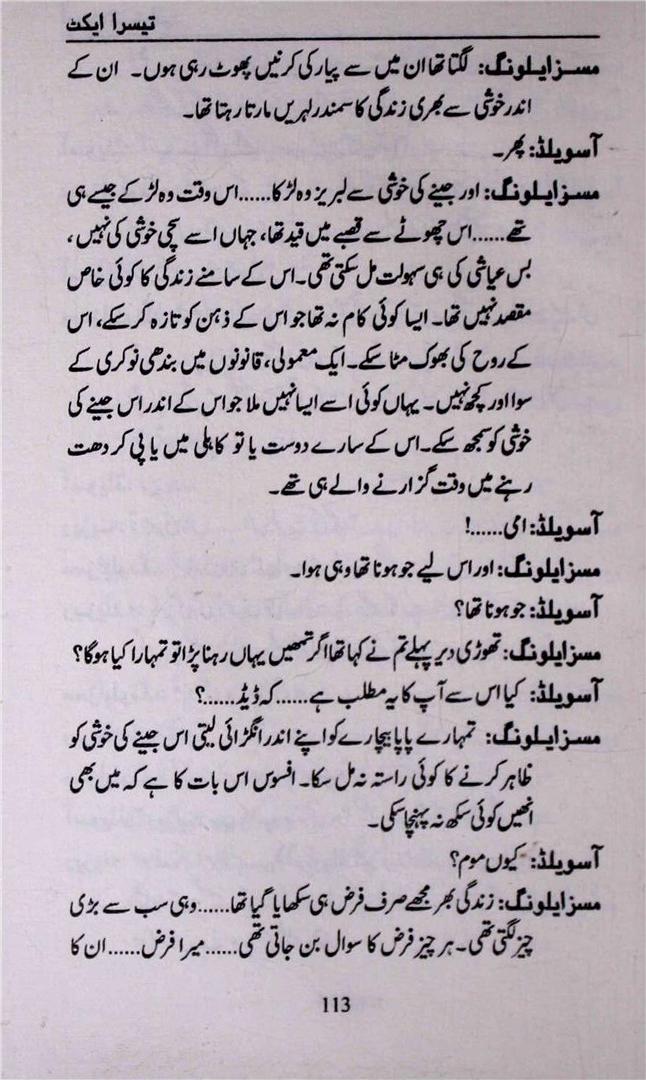 تیسرا ایکٹ
مسز ایلونگ: لگتا تھا ان میں سے پیار کی کرنیں پھوٹ رہی ہوں۔ ان کے
اندر خوشی سے بھری زندگی کا سمندر لہریں مارتا رہتا تھا۔
آسویلڈ: پھر۔
مسز ایلونگ: اور جینے کی خوشی سے لبریز وہ لڑکا......اس وقت وہ لڑکے جیسے ہی
تھے......اس چھوٹے سے قصبے میں قید تھا، جہاں اسے سچی خوشی کی نہیں،
بس عیاشی کی ہی سہولت مل سکتی تھی۔ اس کے سامنے زندگی کا کوئی خاص
مقصد نہیں تھا۔ ایسا کوئی کام نہ تھا جو اس کے ذہن کو تازہ کر سکے، اس
کے روح کی بھوک مٹا سکے۔ ایک معمولی، قانونوں میں بندھی نوکری کے
سوا اور کچھ نہیں۔ یہاں کوئی اسے ایسا نہیں ملا جو اس کے اندر اس جینے کی
خوشی کو سمجھ سکے۔ اس کے سارے دوست یا تو کاہلی میں یا پی کر دھت
رہنے میں وقت گزارنے والے ہی تھے۔
آسویلڈ: امی......!
مسز ایلونگ: اور اس لیے جو ہونا تھا وہی ہوا۔
آسویلڈ: جو ہونا تھا؟
مسز ایلونگ: تھوڑی دیر پہلے تم نے کہا تھا اگر تمھیں یہاں رہنا پڑا تو تمہارا کیا ہوگا؟
آسویلڈ: کیا اس سے آپ کا یہ مطلب ہے......کہ ڈیڈ......؟
مسز ایلونگ: تمہارے پاپا بیچارے کو اپنے اندر انگڑائی لیتی اس جینے کی خوشی کو
ظاہر کرنے کا کوئی راستہ نہ مل سکا۔ افسوس اس بات کا ہے کہ میں بھی
انھیں کوئی سکھ نہ پہنچا سکی۔
آسویلڈ: کیوں موم؟
مسز ایلونگ: زندگی بھر مجھے صرف فرض ہی سکھایا گیا تھا......وہی سب سے بڑی
چیز لگتی تھی۔ ہر چیز فرض کا سوال بن جاتی تھی......میرا فرض......ان کا
113